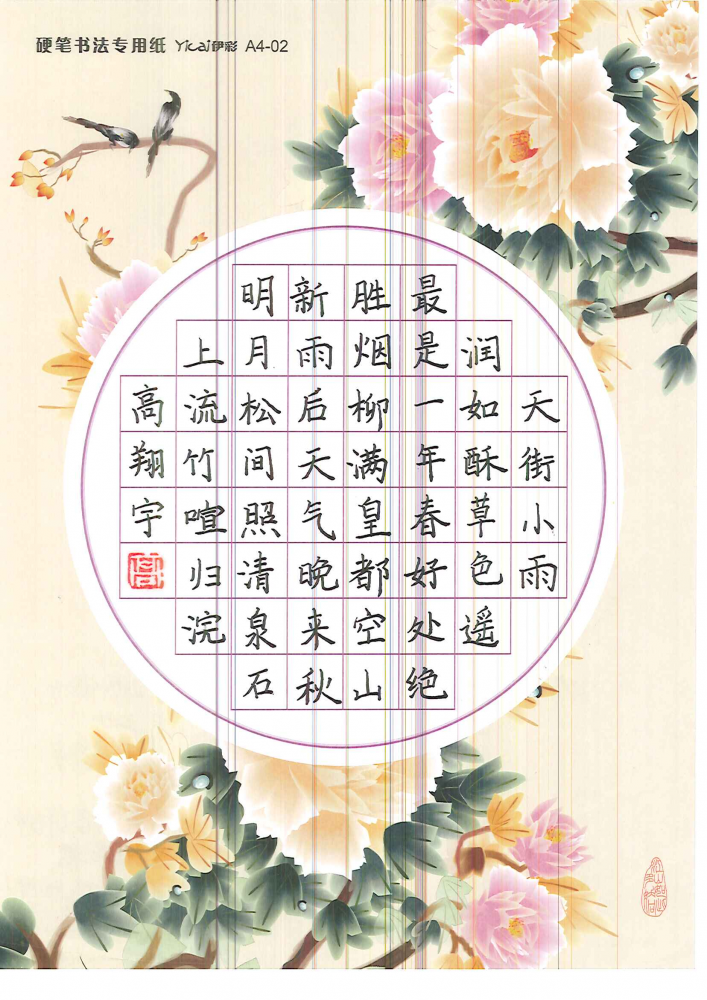 硬笔书法专用纸 Yicai伊彩 A4-02
天街小雨
润如酥草色遥
最是一年春好处绝
胜烟柳满皇都空山
新雨后天气晚来秋
明月松间照清泉石
上流竹喧归浣
高翔宇
高